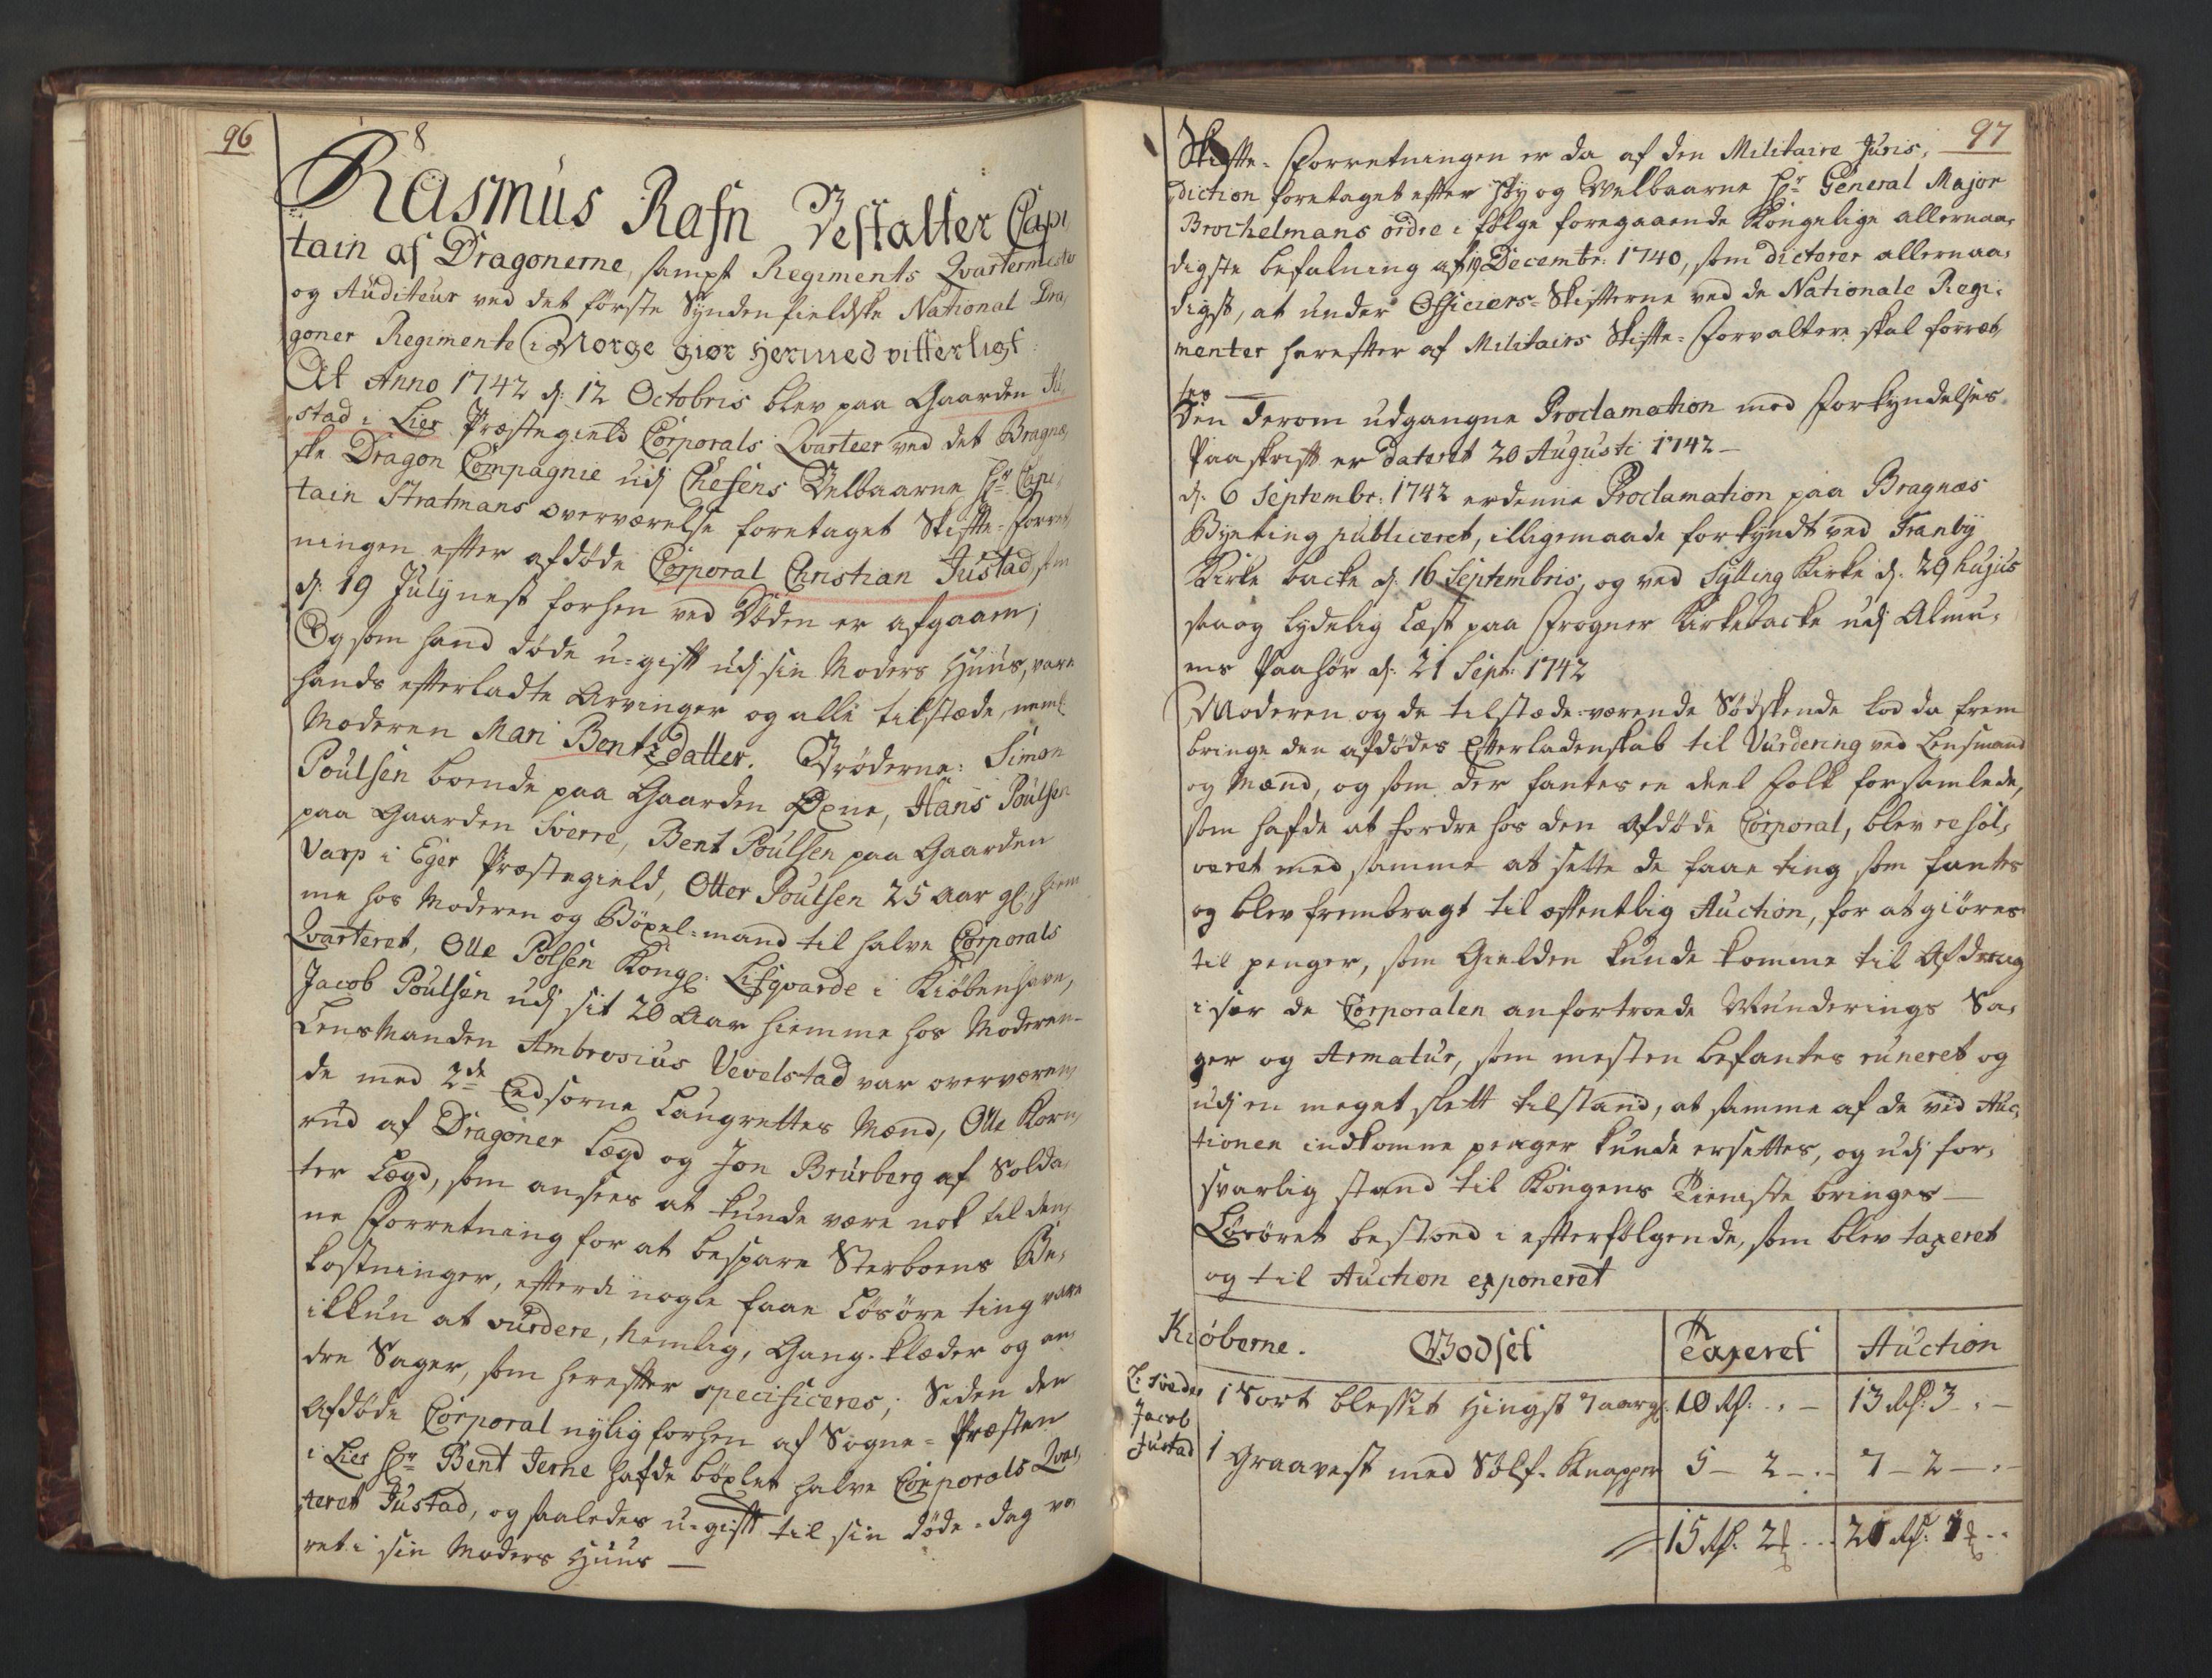 96
8
Rasmus Rafn Bestalter Capi,
tain af Dragonerne, sampt Regiments Qvartermester
og Auditeur ved det første Syndenfieldske National Dra,
goner Regimente i Norge giør hermed vitterligt:
At Anno 1742 d: 12 Octobris blev paa Gaarden Ju,
stad i Lier Præstegield Corporals Qvarteer ved det Bragnæ,
ske Dragon Compagnie udj Chefens Velbaarne Hr. Capi,
tain Stratmans overværelse foretaget Skifte-Forret,
ningen efter afdøde Corporal Christian Justad, som
d: 19 July nest forhen ved Døden er afgaaen;
Og som hand døde u-gift udj sin Moders Huus, vare
hands efterladte Arvinger og alle tilstæde, neml:
Moderen Mari Bentzdatter. Brøderne: Simon
Poulsen boende paa Gaarden Øxne, Hans Poulsen
paa Gaarden Sverre, Bent Poulsen paa Gaarden
Varp i Eger Præstegield, Otter Poulsen 25 Aar gl: hiem,
me hos Moderen og Böxel-mand til halve Corporals
Qvarteret, Olle Polsen Kongl: Lifgvarde i Kiöbenhavn,
Jacob Poulsen udj sit 20 Aar hiemme hos Moderen-
LensManden Ambrosius Vevelstad var overværen,
de med 2de Eedsorne Laugrettes Mænd, Olle Korn,
rud af Dragoner Lægd og Jon Brurberg af Solda,
ter Lægd, som ansees at kunde være nok til den,
ne Forretning for at bespare Sterboens Be,
kostninger, efterdi nogle faae Løsøre ting vare
ikkun at vurdere, nemlig, Gang-klæder og an,
dre Sager, som herefter specificeres; Siden den
Afdøde Corporal nylig forhen af Sogne-Præsten
i Lier Hr. Bent Jerne hafde böxlet halve Corporals Qvar,
teret Justad, og saaledes u-gift til sin døde-dag va,
ret i sin Moders Huus —
97
Skifte-Forretningen er da af den Militaire Juris,
diction foretaget efter Høy og Velbaarne Hr. General Major
Brochelmans ordre i følge foregaaende Kongelige allernaa,
digste befalning af 19 Decembr: 1740, som dicterer allernaa,
digst, at under Officiers-Skifterne ved de Nationale Regi,
menter herefter af Militairs Skifte-Forvaltere skal forret,
tes —
Den derom udgangne Proclamation med Forkyndelses
Paaskrift er dateret 20 Augusti 1742 —
d: 6 Septembr: 1742 er denne Proclamation paa Bragnæs
Byeting publiceret, illigemaade forkyndt ved Tranby
Kirke backe d: 16 Septembris, og ved Sylling Kirke d: 29 hujus
saa og lydelig læst paa Frogner Kirkebacke udj Almu,
ens Paahør d: 21 Sept: 1742
Moderen og de tilstæde-værende Södskende lod da frem
bringe den afdødes Efterladenskab til Vurdering ved Lensmand
og Mænd, og som der fantes en deel folk forsamlede,
som hafde at fordre hos den Afdøde Corporal, blev resol,
veret med samme at sette de faae ting som fantes
og blev frembragt til offentlig Auction, for at giöres
til penger, som Gielden kunde komme til Afdrag
i sær de Corporalen anfortroede Munderings Sa,
ger og Armatur, som mesten befantes runeret og
udj en meget slett tilstand, at samme af de ved Auc,
tionen indkomne penger kunde ersettes, og udj for,
svarlig stand til Kongens Tieniste bringes —
Løsöret bestoed i efterfölgende, som blev taxeret
og til Auction exponeret
Kiöberne. Godset Taxeret Auction
Jacob
Justad
1 Sort blesset Hingst 7 aar gl. 10 Rd: . - 13 Rd: 3 . -
1 Graavest med Sölf-Knapper 5 - 2 - . - 7 - 2 - . -
15 Rd. 2 . . . 20 Rd: 1 . .